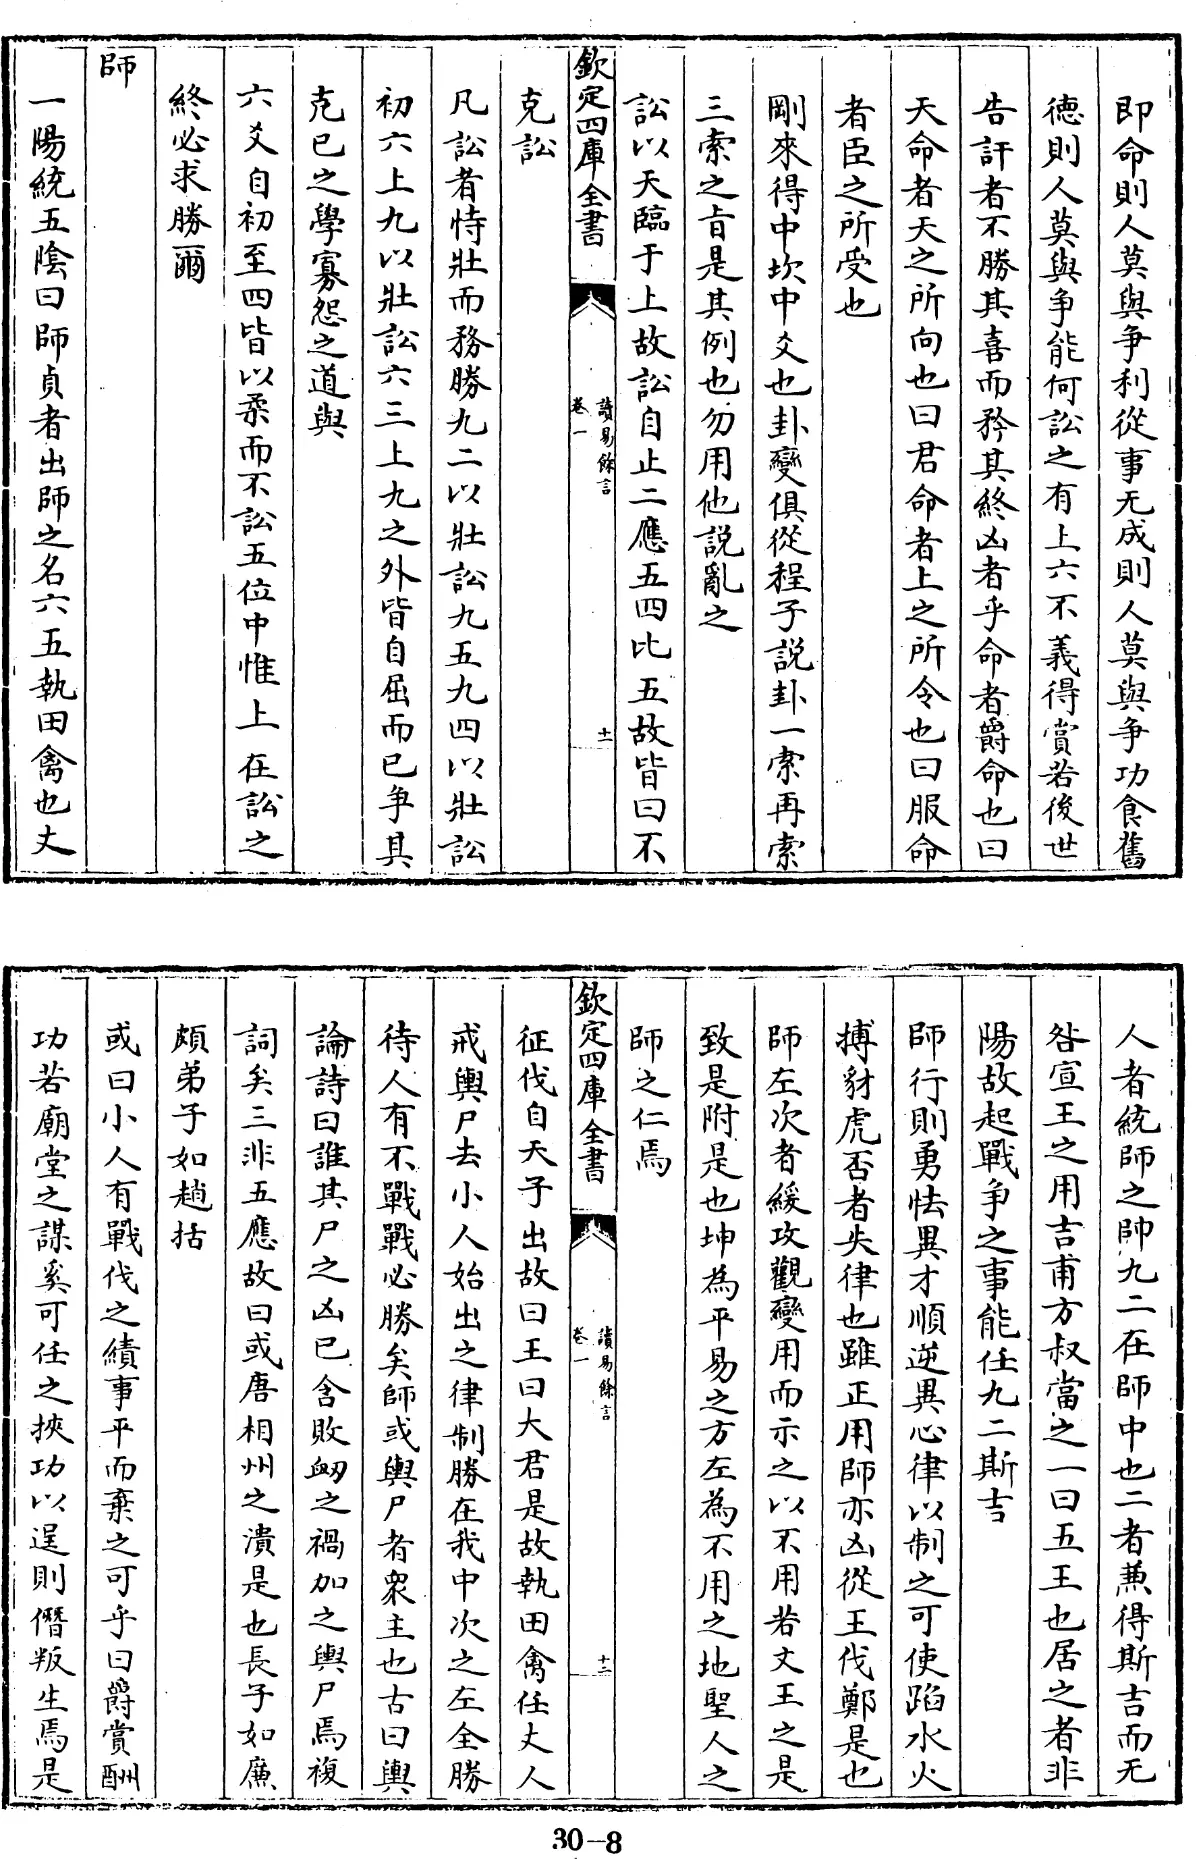 即命則人莫與争利從事无成則人莫與争功食舊
德則人莫與争能何訟之有上六不義得賞若後世
告訐者不勝其喜而矜其終凶者乎命者爵命也曰
天命者天之所向也曰君命者上之所令也曰服命
者臣之所受也
剛來得中坎中爻也卦變俱從程子説卦一索再索
三索之旨是其例也勿用他説亂之
訟以天臨于上故訟自止二應五四比五故皆曰不
欽定四庫全書
讀易餘言
卷一
十一
克訟
凡訟者恃壯而務勝九二以壯訟九五九四以壯訟
初六上九以壯訟六三上九之外皆自屈而已争其
克已之學寡怨之道與
六爻自初至四皆以柔而不訟五位中惟上在訟之
終必求勝爾
師
一陽統五陰曰師貞者出師之名六五執田禽也丈
人者統師之帥九二在師中也二者兼得斯吉而无
咎宣王之用吉甫方叔當之一曰五王也居之者非
陽故起戰争之事能任九二斯吉
師行則勇怯異才順逆異心律以制之可使蹈水火
搏豺虎否者失律也雖正用師亦凶從王伐鄭是也
師左次者緩攻觀變用而示之以不用若文王之是
致是附是也坤為平易之方左為不用之地聖人之
師之仁焉
欽定四庫全書
讀易餘言
卷一
十二
征伐自天子出故曰王曰大君是故執田禽任丈人
戒輿尸去小人始出之律制勝在我中次之左全勝
待人有不戰戰必勝矣師或輿尸者衆主也古曰輿
論詩曰誰其尸之凶已含敗衂之禍加之輿尸焉複
詞矣三非五應故曰或唐相州之潰是也長子如廉
頗弟子如趙括
或曰小人有戰伐之績事平而棄之可乎曰爵賞酬
功若廟堂之謀奚可任之挾功以逞則僭叛生焉是
30-8